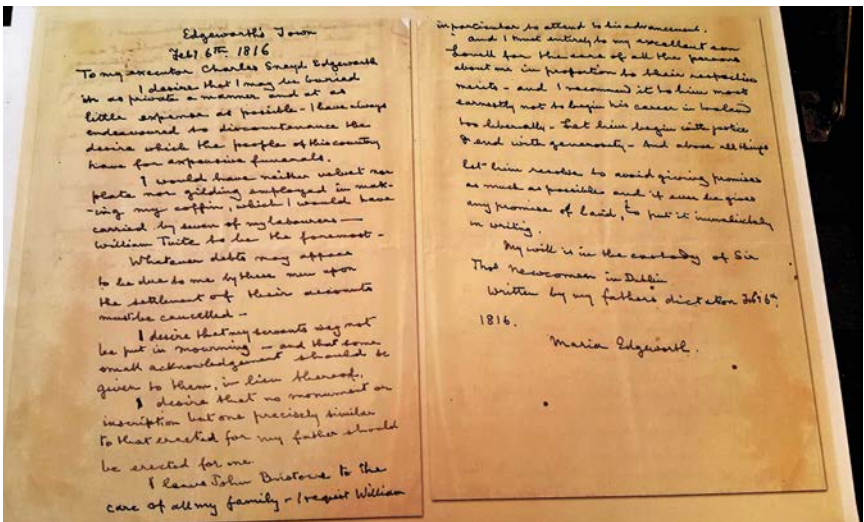 Edgeworth's Town
Feby 6th. 1816
To my executor Charles Sneyd Edgeworth
I desire that I may be buried
in as private a manner and at as
little expense as possible - I have always
endeavoured to discountenance the
desire which the people of this country
have for expensive funerals.
I would have neither velvet nor
plate nor gilding employed in mak-
-ing my coffin, which I would have
carried by seven of my labourers —
William Tuite to be the foremost -
Whatever debts may appear
to be due to me by these men upon
the settlement of their accounts
must be cancelled -
I desire that my servants may not
be put in mourning — and that some
small acknowledgement should be
given to them, in lieu thereof.
I desire that no monument or
inscription but one precisely similar
to that erected for my father should
be erected for me.
I leave John Bristowe to the
care of all my family - I request William
in particular to attend to his advancement.
and I trust entirely to my excellent son
Lovell for the care of all the persons
about me in proportion to their respective
merits - and I recommend it to him most
earnestly not to begin his career in Ireland
too liberally - Let him begin with justice
& end with generosity - And above all things
let him resolve to avoid giving promises
as much as possible and if ever he gives
any promise of land, to put it immediately
in writing.
My will is in the custody of Sir
Thos Newcomen in Dublin
Written by my father's dictation Feby 6th.
1816.
Maria Edgeworth.